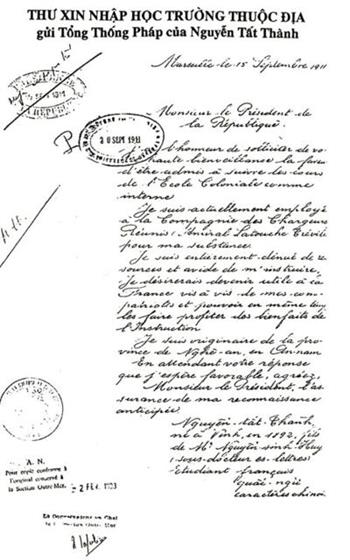 THƯ XIN NHẬP HỌC TRƯỜNG THUỘC ĐỊA
gửi Tổng Thống Pháp của Nguyễn Tất Thành
Marseille le 15 Septembre 1911
Monsieur le Président de
la République
20 SEPT 1911
J'ai l'honneur de solliciter de vo-
tre haute bienveillance la faveur
d'être admis à suivre les cours
de l'Ecole Coloniale comme
interne
Je suis actuellement employé
à la Compagnie des Chargeurs
Réunis, Amiral Latouche Tréville
pour ma substance
Je suis entièrement dénué de res-
sources et avide de m'instruire,
Je désirerais devenir utile à la
France vis à vis de mes com-
patriotes et pouvoir en même temps
les faire profiter des bienfaits de
l'Instruction
Je suis originaire de la pro-
vince de Nghê-an, en Annam
En attendant votre réponse
que j'espère favorable, agréez,
Monsieur le Président, l'as-
surance de ma reconnaissance
anticipée
Nguyên-tât-Thanh,
né à Vinh, en 1892, fils
de Mr Nguyên-sinh-Huy
sous-docteur ès-lettres
Etudiant français
quôc-ngu
caractères chinois
A. N.
Pour copie conforme à
l'original conservé à
la Section Outre-Mer.
Le Conservateur en Chef